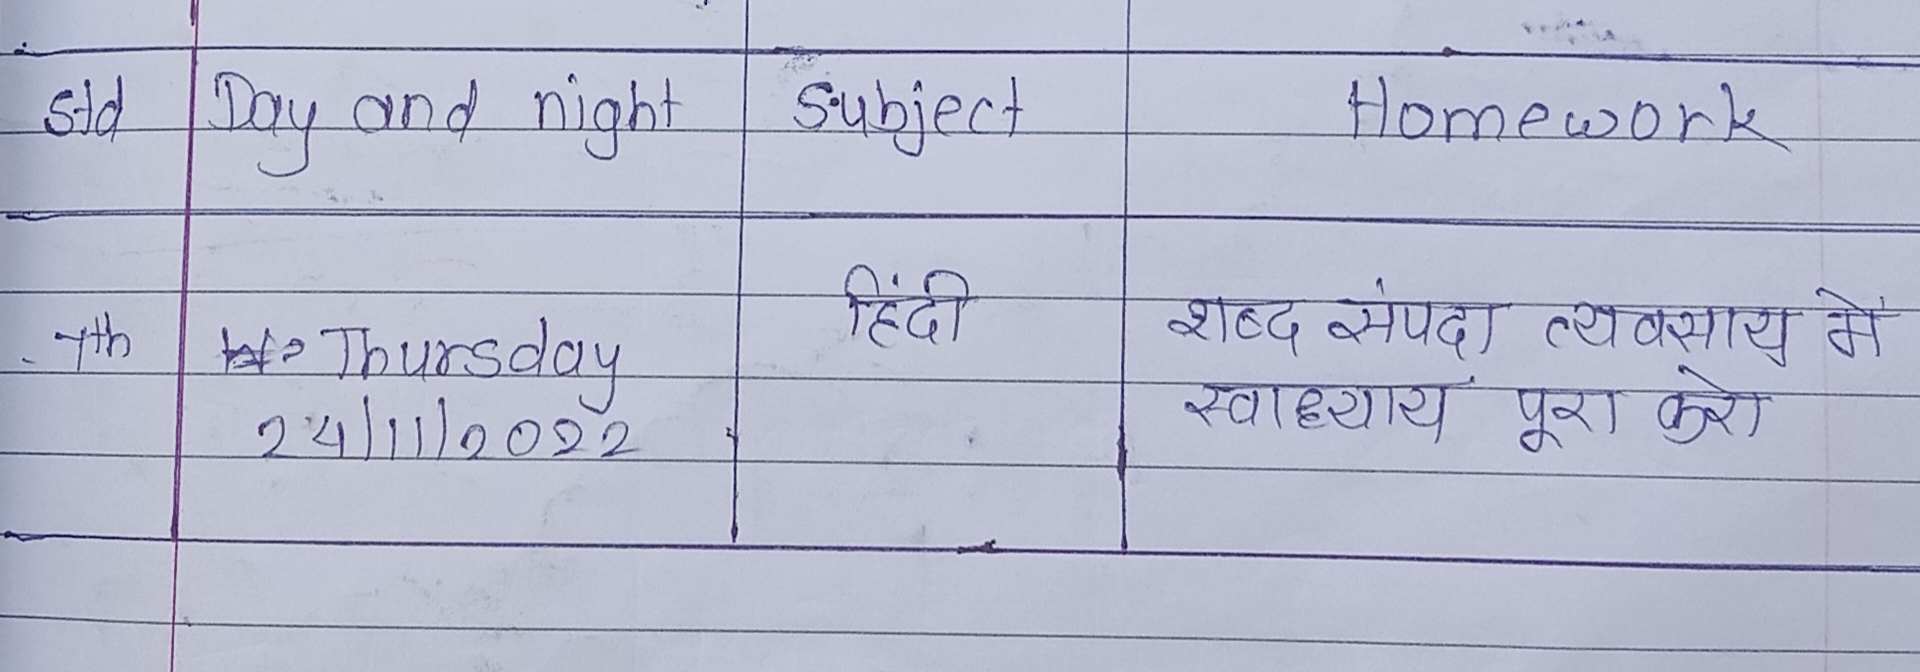 Std Day and night Subject Homework
7th Thursday हिंदी शब्द संपदा व्यवसाय में
24/11/2022 स्वाध्याय पूरा करो